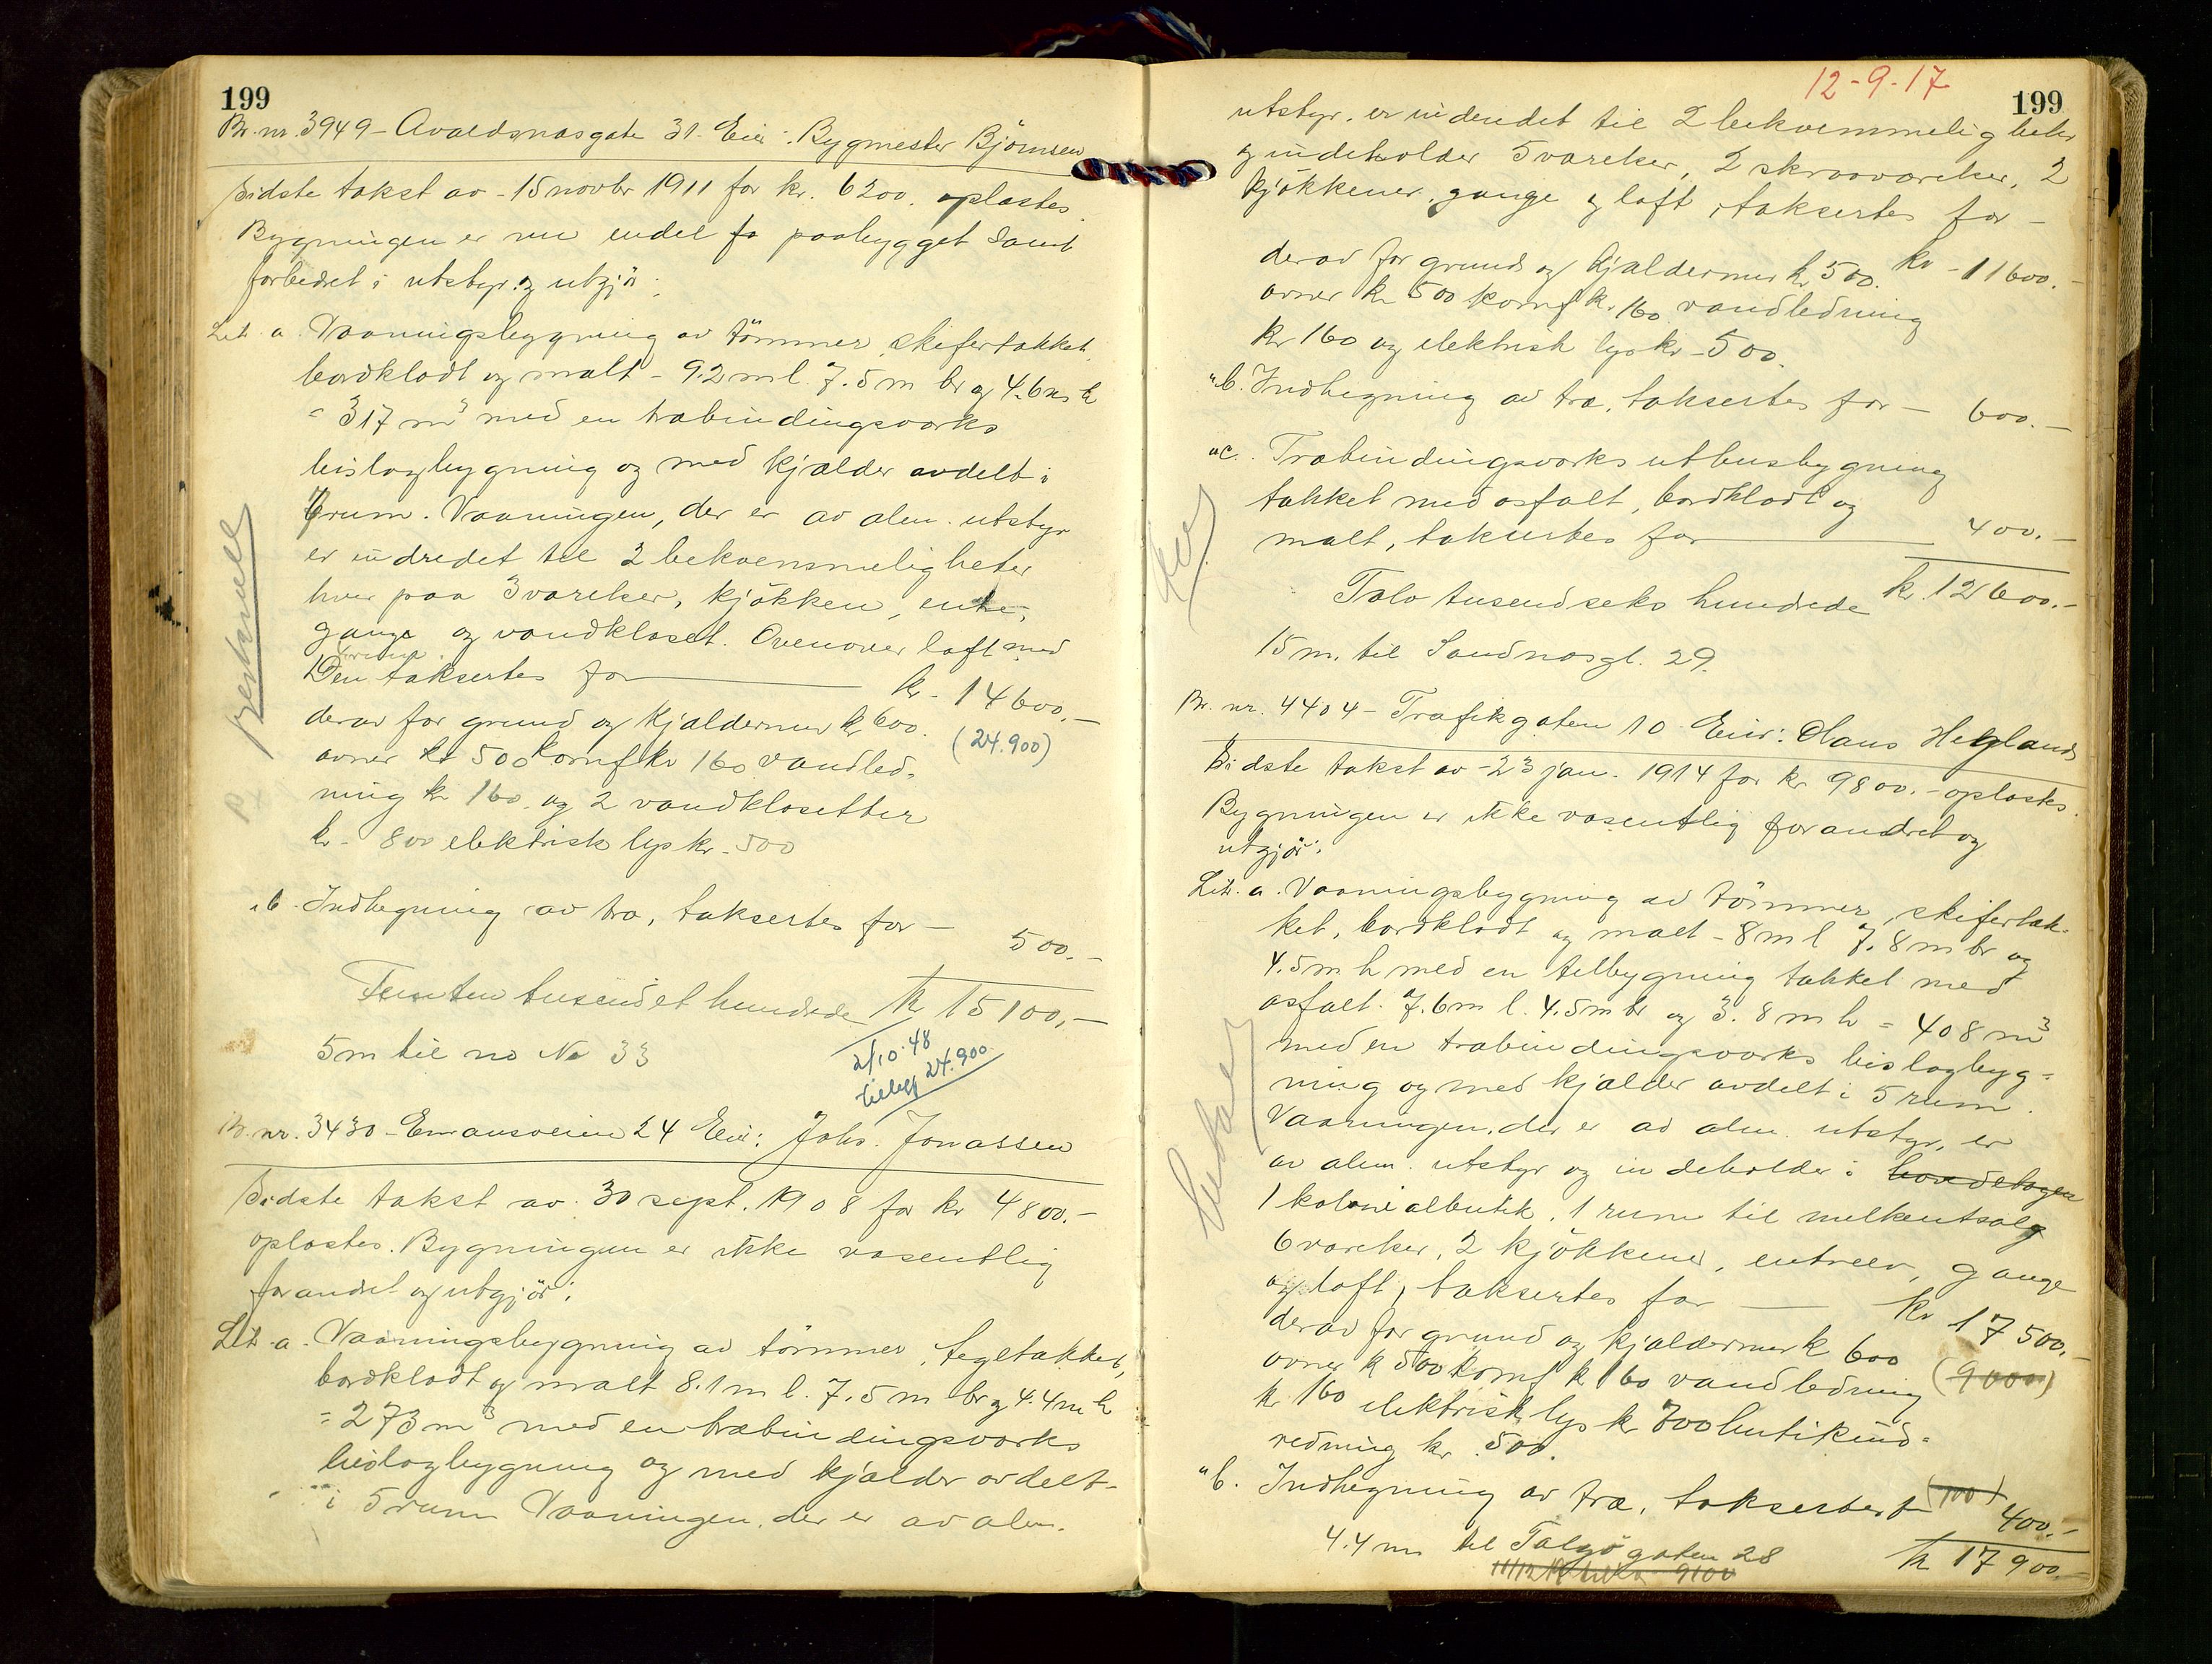 199
Br. nr. 3949 - Avaldsnæsgate 31. Eier: Bygmester Björnsen
Sidste takst av - 15 novbr 1911 for kr. 6200. oplæstes.
Bygningen er nu endel paabygget samt
forbedret i utstyr. og utgjör:
Lit. a. Vaaningsbygning av tömmer, skifertækket,
bordklædt og malt - 9.2 m l. 7.5 m br og 4.6 m h
= 317 m³ med en træbindingsværks
bislagbygning og med kjælder avdelt i
7 rum. Vaaningen, der er av alm. utstyr
er indredet til 2 bekvemmeligheter
hver paa 3 værelser, kjökken, entre,
gange og vandkloset. Ovenover loft med
Den takseres for kr. 14600.-
derav for grund og kjældermur kr 600. (24.900)
ovner kr 500 komf kr 160 vandled-
ning kr 160. og 2 vandklosetter
kr - 800 elektrisk lys kr - 500
" b. Indhegning av træ, takseres for - 500.-
Femten tusen et hundrede kr 15100,-
5 m til no No 33
2/10. 48
tillegg 24.900.
Bestyrelse
Br. nr. 3430 - Emausveien 24 Eier: Johs. Jonassen
Sidste takst av 30 sept. 1908 for kr 4800.-
oplæstes. Bygningen er ikke væsentlig
forandret og utgjör:
Lit. a. Vaaningsbygning av tömmer, tegltækket,
bordklædt og malt 8.1 m l. 7.5 m br og 4.4 m h
= 273 m³ med en træbindingsværks
bislagbygning og med kjælder avdelt -
i 5 rum Vaaningen, der er av alm.
12-9-17
199
utstyr. er indredet til 2 bekvemmeligheter
og indeholder 5 værelser, 2 skraaværelser, 2
kjökkener, gange og loft, takseres for -
kr - 11600.-
derav for grund og kjældermur kr 500.
ovner kr 500 komf kr. 160 vandledning
kr 160 og elektrisk lys kr - 500.
" b. Indhegning av træ, takseres for - 600.-
" c. Træbindingsværks uthusbygning
tækket med asfalt, bordklædt og
malt, takseres for 400.-
Tolv tusend seks hundrede kr. 12600.-
15 m. til Sandnæsgt. 29.
Br. nr. 4404 - Trafikgaten 10. Eier: Olaus Helgland
Sidste takst av - 23 jan. 1914 for kr 9800.- oplæstes.
Bygningen er ikke væsentlig forandret og
utgjör:
Lit. a. Vaaningsbygning av tömmer, skifertæk-
ket, bordklædt og malt - 8 m l 7.8 m br og
4.5 m h med en tilbygning tækket med
asfalt. 7.6 m l. 4.5 m br og 3.8 m h = 408 m³
med en træbindingsværks bislagbyg-
ning og med kjælder avdelt i 5 rum.
Vaaningen, der er av alm. utstyr, er
av alm. utstyr og indeholder i
1 kolonialbutik, 1 rum til melkeutsalg
6 værelser, 2 kjökkener, entreer, gange
og loft, takseres for kr 17500.-
derav for grund og kjældermur kr 600 (9000)
ovner kr 500 komf kr 160 vandledning
kr 160 elektrisk lys kr 700 butikind-
redning kr. 500.
" b. Indhegning av træ, takseres f (100) 400.-
4.4 m til Talgö gaten 28 kr 17900.-
9100